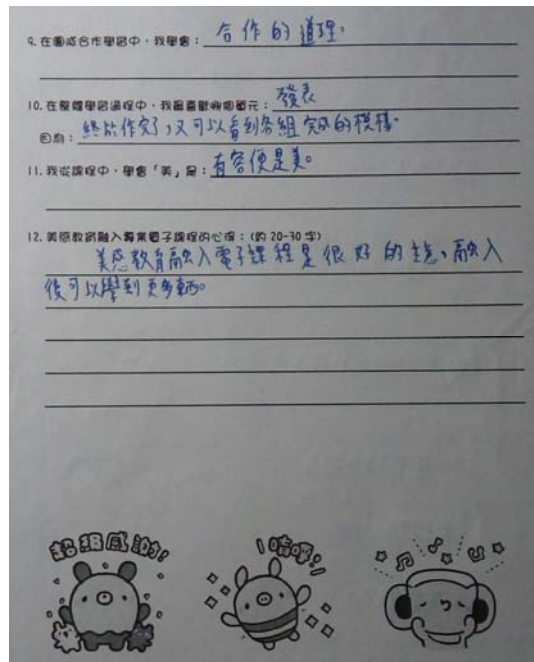 9. 在團隊合作學習中,我學會:合作的道理。
10. 在整體學習過程中,我最喜歡哪個單元:發表
因為:終於作完了,又可以看到各組完成的模樣。
11. 我從課程中,學會「美」是:有容便是美。
12. 美感教育融入專業電子課程的心得:(約 20-30 字)
美感教育融入電子課程是很好的主意,融入
後可以學到更多東西。
超級感謝!
唷呼!